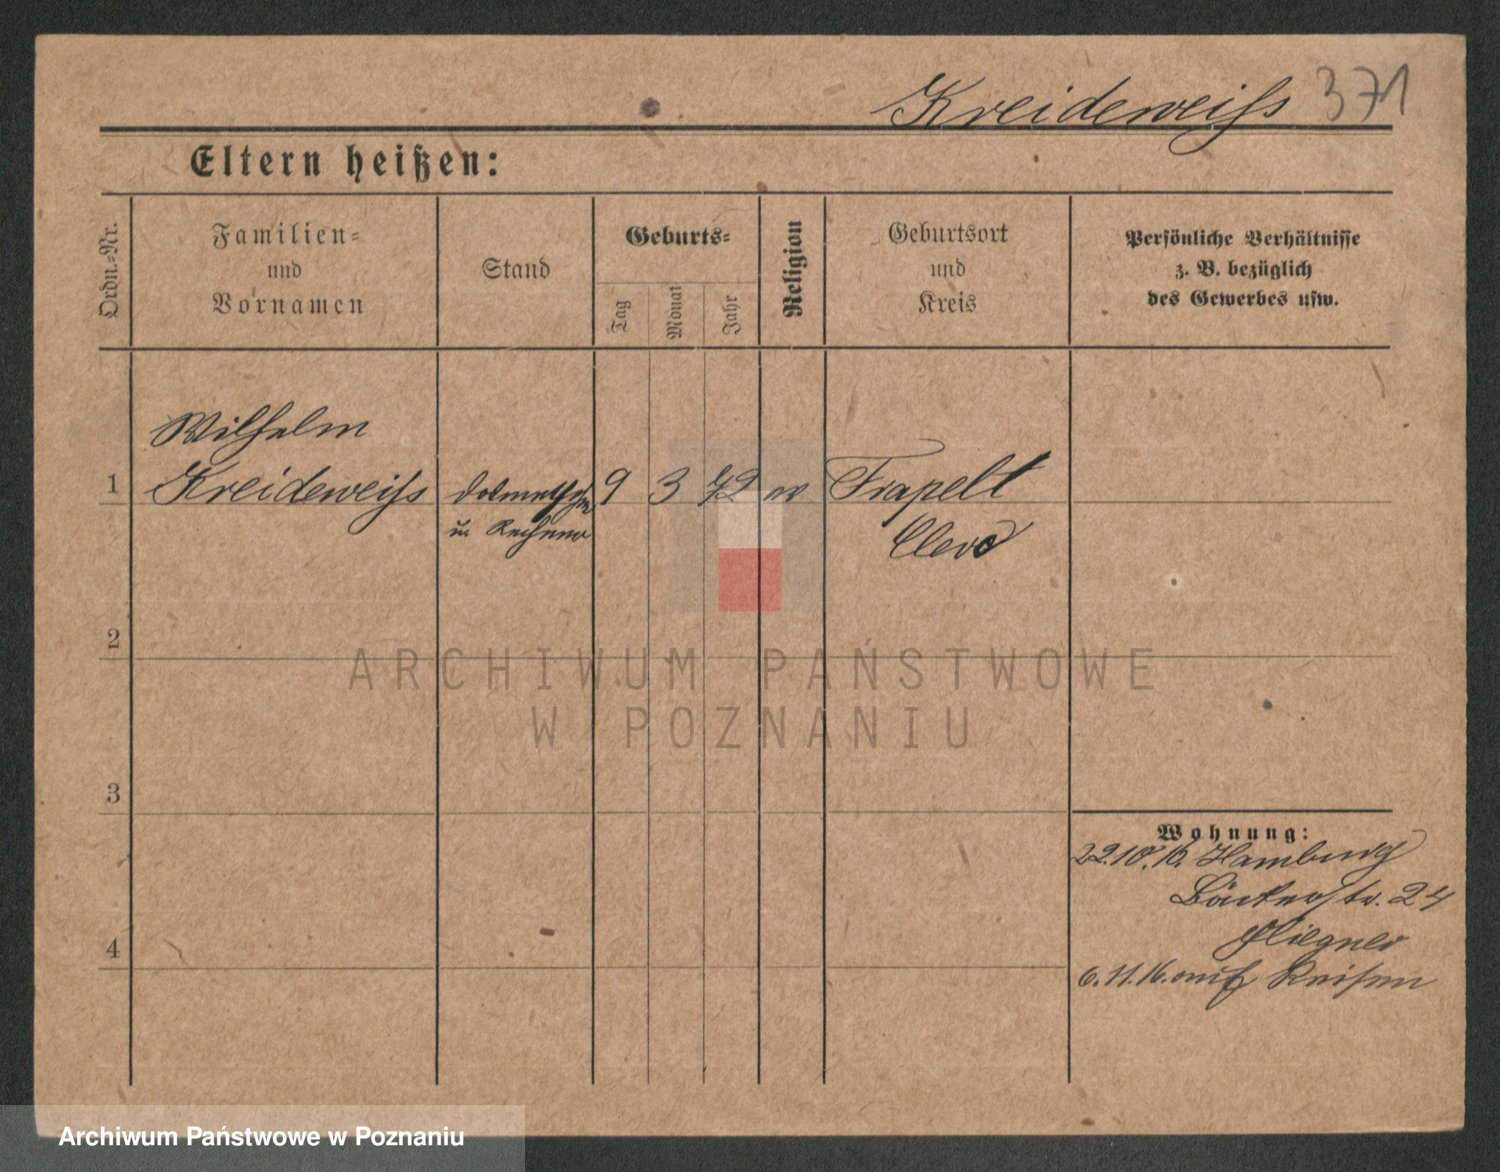 Kreideweiss 371
Eltern heißen:
Ordn.-Nr.
Familien-
und
Vornamen
Stand
Geburts-
Tag
Monat
Jahr
Religion
Geburtsort
und
Kreis
Persönliche Verhältnisse
z. B. bezüglich
des Gewerbes usw.
Wilhelm
1 Kreideweiss 9 3 72 ev Frapelt
u.
Cleve
2
ARCHIWUM PAŃSTWOWE
W POZNANIU
3
Wohnung:
22.10.16. Hamburg
Bäckerstr. 24
4
6.11.16. auf Reisen
Archiwum Państwowe w Poznaniu